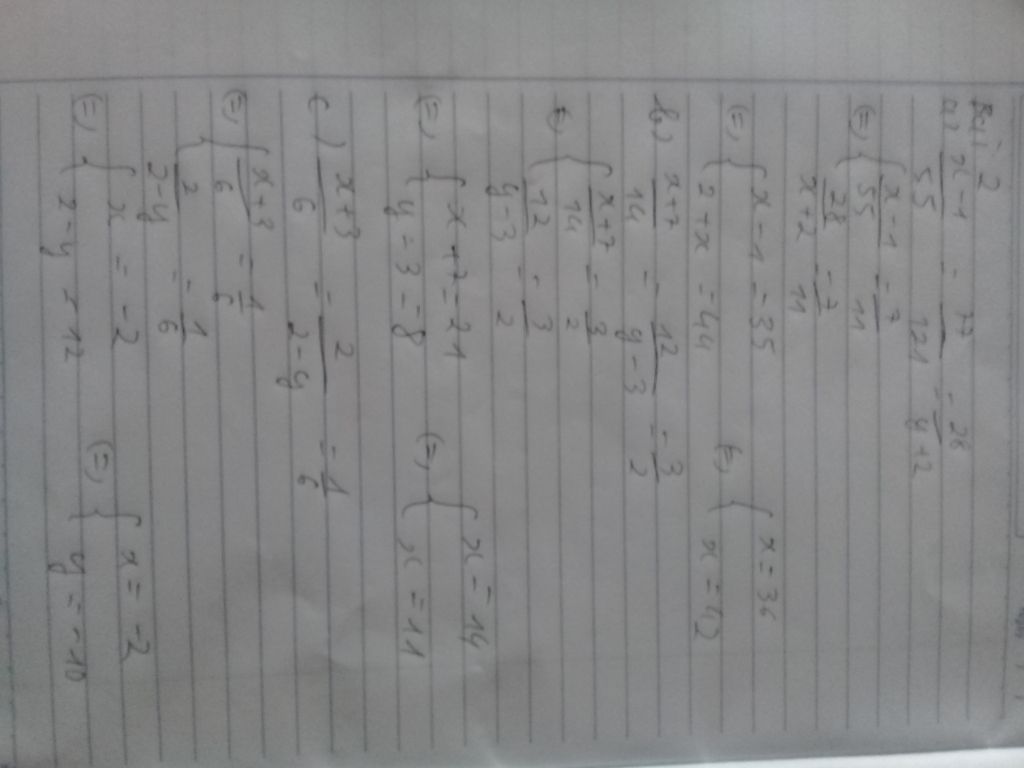 Bài 2
a) x-1/55 = 77/121 = 28/y+2
(=) { x-1/55 = 7/11
28/x+2 = 7/11
(=) { x-1 = 35 (=) { x = 36
2+x = 44 x = 42
b) x+7/14 = 12/y-3 = 3/2
(=) { x+7/14 = 3/2
12/y-3 = 3/2
(=) { x+7=21 (=) { x = 14
y-3=8 x = 11
c) x+3/6 = 2/2-y = 1/6
(=) { x+3/6 = 1/6
2/2-y = 1/6
(=) { x = -2 (=) { x = -2
2-y = 12 y = -10